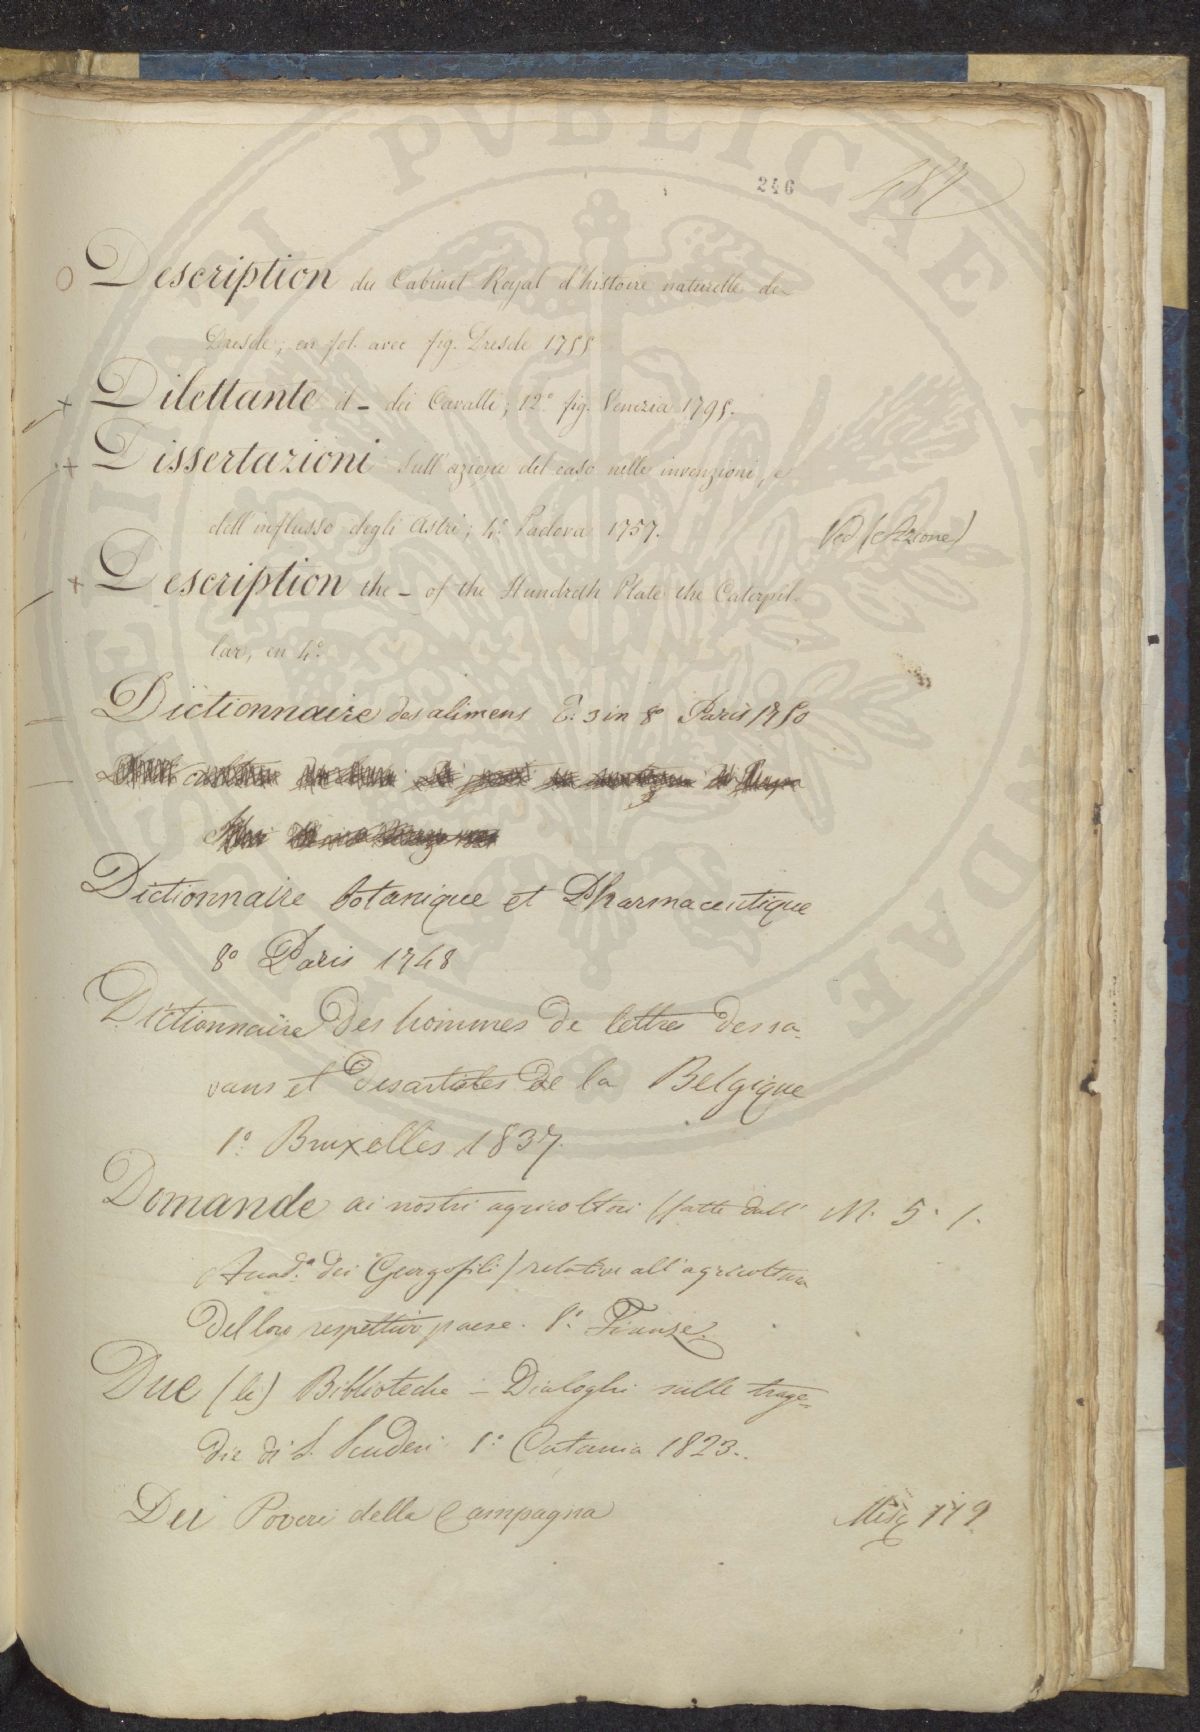 246
487
Description du Cabinet Royal d'histoire naturelle de
Dresde; en fol. avec fig. Dresde 1755
Dilettante il - dei Cavalli; 12.º fig. Venezia 1795.
Dissertazioni sull'azione del caso nelle invenzioni, e
dell'influsso degli Astri; 4.º Padova 1757. Ved (Azzone)
Description the - of the Hundreth Plate the Caterpil-
lar, en 4.º
Dictionnaire des alimens T. 3 in 8º Paris 1750
Dictionnaire botanique et Pharmaceutique
8º Paris 1748
Dictionnaire des hommes de lettres des sa-
vans et des artistes de la Belgique
8.º Bruxelles 1837.
Domande ai nostri agricoltori (fatte dall' M. 5. 1.
Accad.ª dei Georgofili) relative all'agricoltura
del loro respettivo paese. 8.º Firenze.
Due (le) Biblioteche - Dialoghi sulle trage-
die di S. Scuderi 8.º Catania 1823.
Dei Poveri della Campagna Misc 119
PUBLICAE